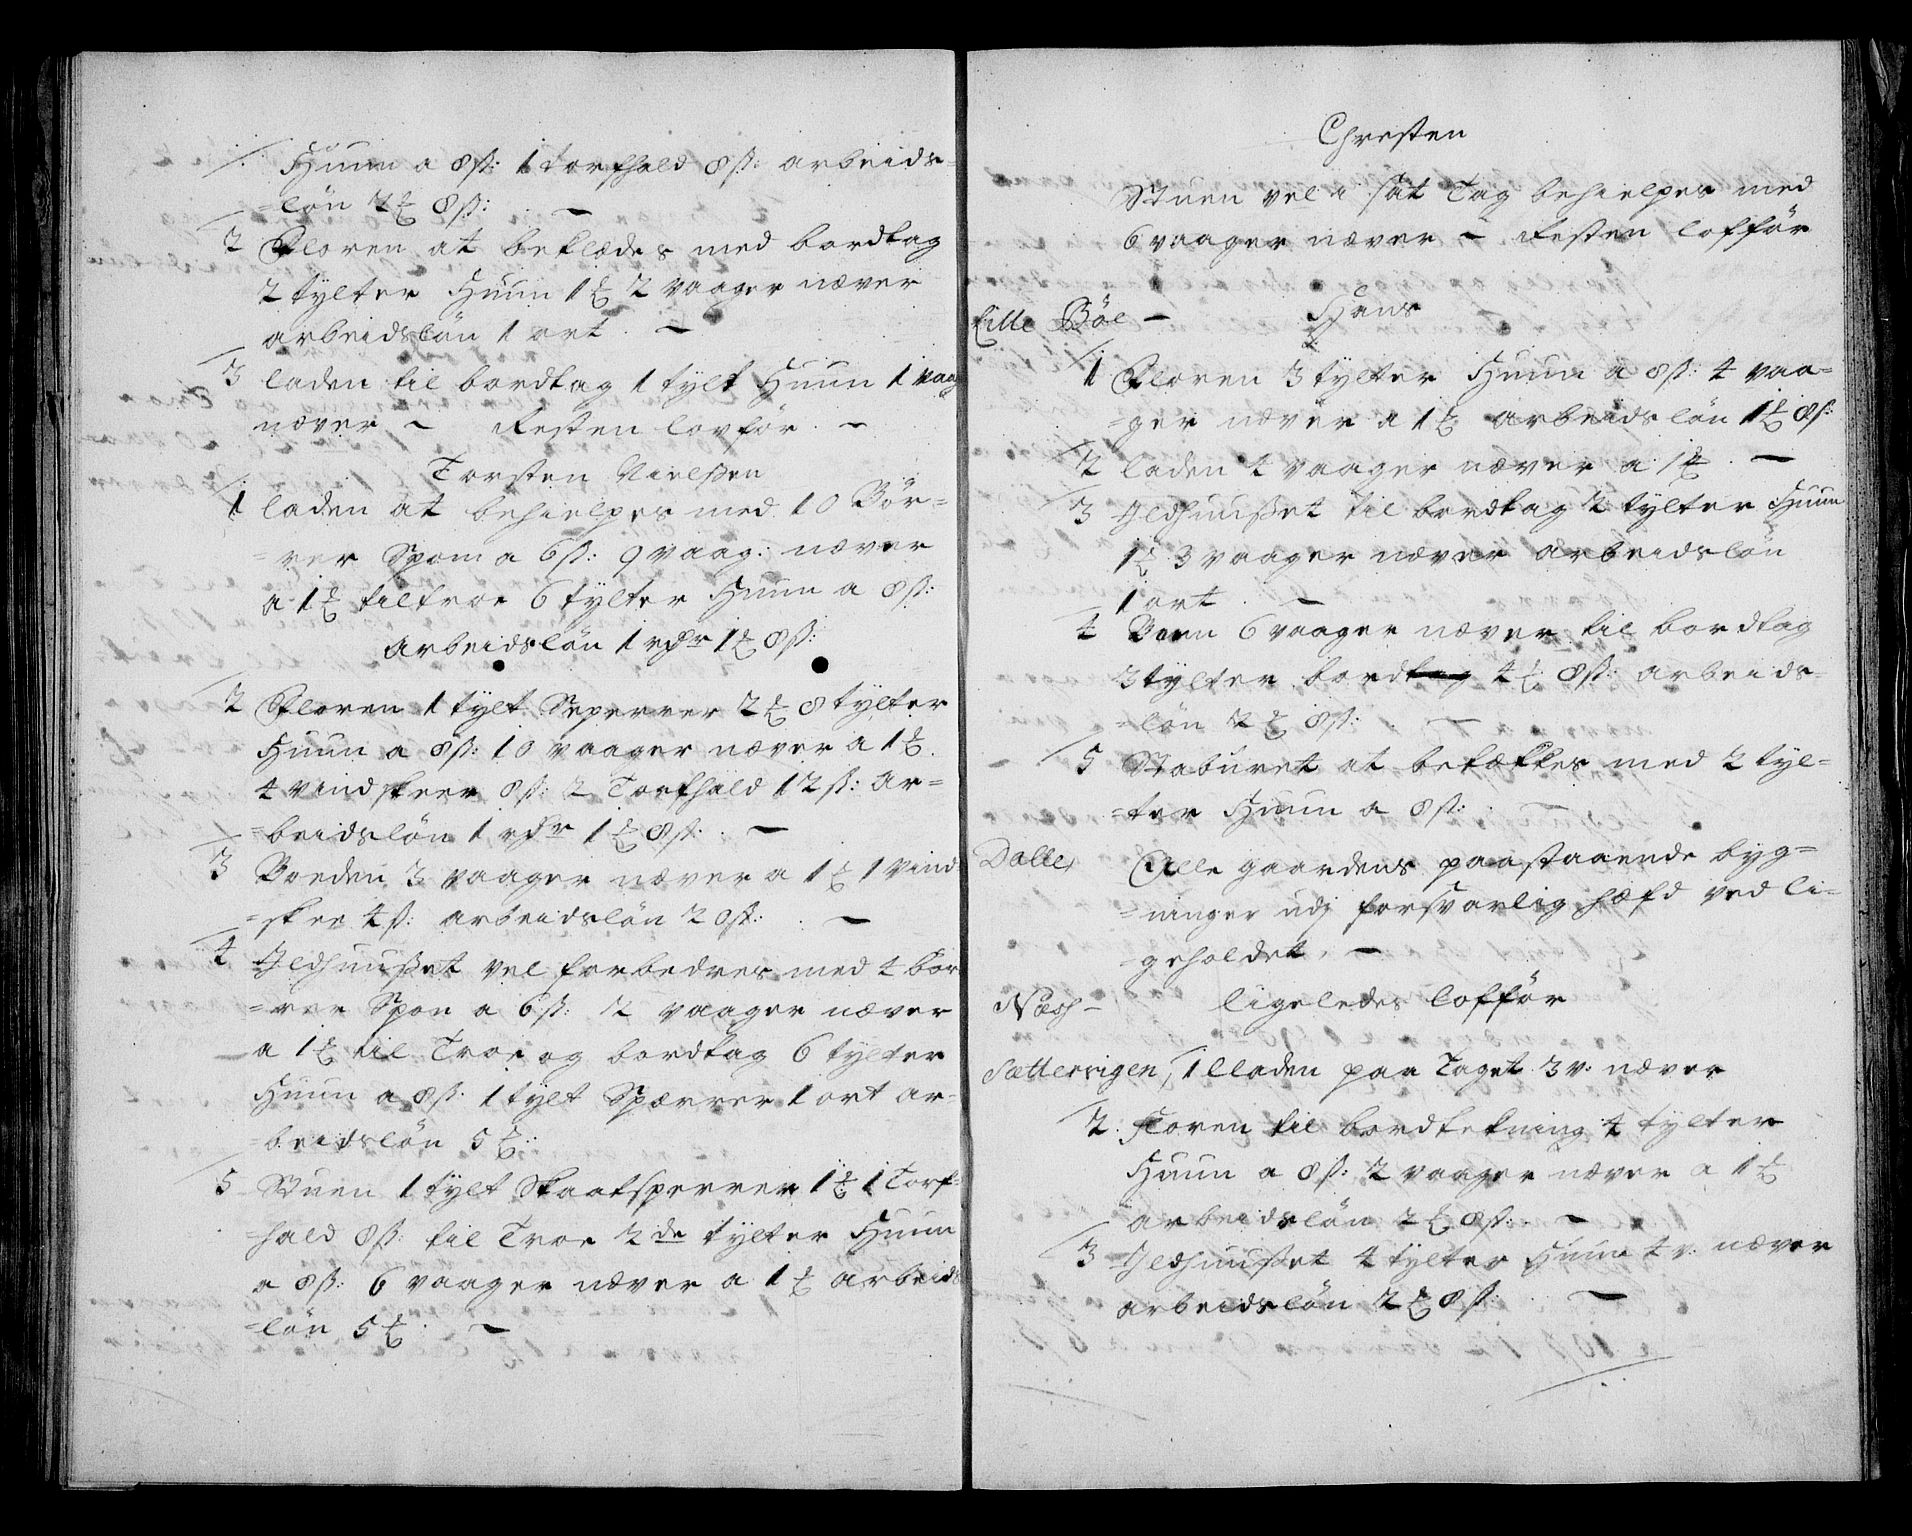 Huun a 8ß: 1 torfhald 8ß: arbeids-
=løn 2 ℔ 8ß: —
2 Floren at beklædes med bordtag
2 tylter Huun 1 ℔ 2 vaager næver
arbeidsløn 1 ort. —
3 laden til bordtag 1 tylt Huun 1 vaag
næver — Resten lovför. —
Torsten Nielßen
1 laden at behielpes med 10 Bör=
=rer Spom a 6ß: 9 vaag: næver
a 1 ℔ til troe 6 tylter Huun a 8ß:
Arbeidsløn 1 rdr 1 ℔ 8ß:
2 Floren 1 tylt Sperrer 2 ℔ 8 tylter
Huun a 8ß: 10 vaager næver a 1 ℔.
4 vindskeer 8ß: 2 Torfhald 12ß: Ar=
=beidsløn 1 rdr 1 ℔ 8ß: . —
3 Boeden 3 vaager næver a 1 ℔ 1 vind
=skee 4ß: arbeidsløn 20ß: . —
4 Ildhuußet vel forbedres med 4 bör
=rer Spon a 6ß: 2 vaager næver
a 1 ℔ til Troe og bordtag 6 tylter
Huun a 8ß: 1 tylt Spærrer 1 ort ar-
=beidsløn 5 ℔:
5 Stuen 1 tylt Skaatsperrer 1 ℔ 1 Torf=
=hald 8ß: til Troe 2de tylter Huun
a 8ß: 6 vaager næver a 1 ℔ arbeids
=løn 5 ℔. —
Chresten
Stuen vel i sat Tag behielpes med
6 vaager næver — Resten lofför
Lille Böe — Hans
1 Floren 3 tylter Huun a 8ß: 4 vaa=
=ger næver a 1 ℔ arbeidsløn 1 ℔ 8ß
2 laden 4 vaager næver a 1 ℔. —
3 Ildhuußet til bordtag 2 tylter Huun
1 ℔ 3 vaager næver arbeidsløn
1 ort. —
4 Boen 6 vaager næver til bordtag
3 tylter bordtag 4 ℔ 8ß: arbeids-
=løn 2 ℔ 8ß: —
5 Staburet at betækkes med 2 tyl=
=ter Huun a 8ß:
Dalle, Alle gaardens paastaaende byg=
=ninger udj forsvarlig hæfd ved li=
geholdet. —
Næss — ligeledes lofför
Sætterrigen, 1 Laden paa Taget 3 v: næver
2: Floren til bordtekning 4 tylter
Huun a 8ß: 2 vaager næver a 1 ℔
arbeidsløn 2 ℔ 8ß: . —
3 Ildhuußet 4 tylter Huun 4 v: næver
arbeidsløn 2 ℔ 8ß: —